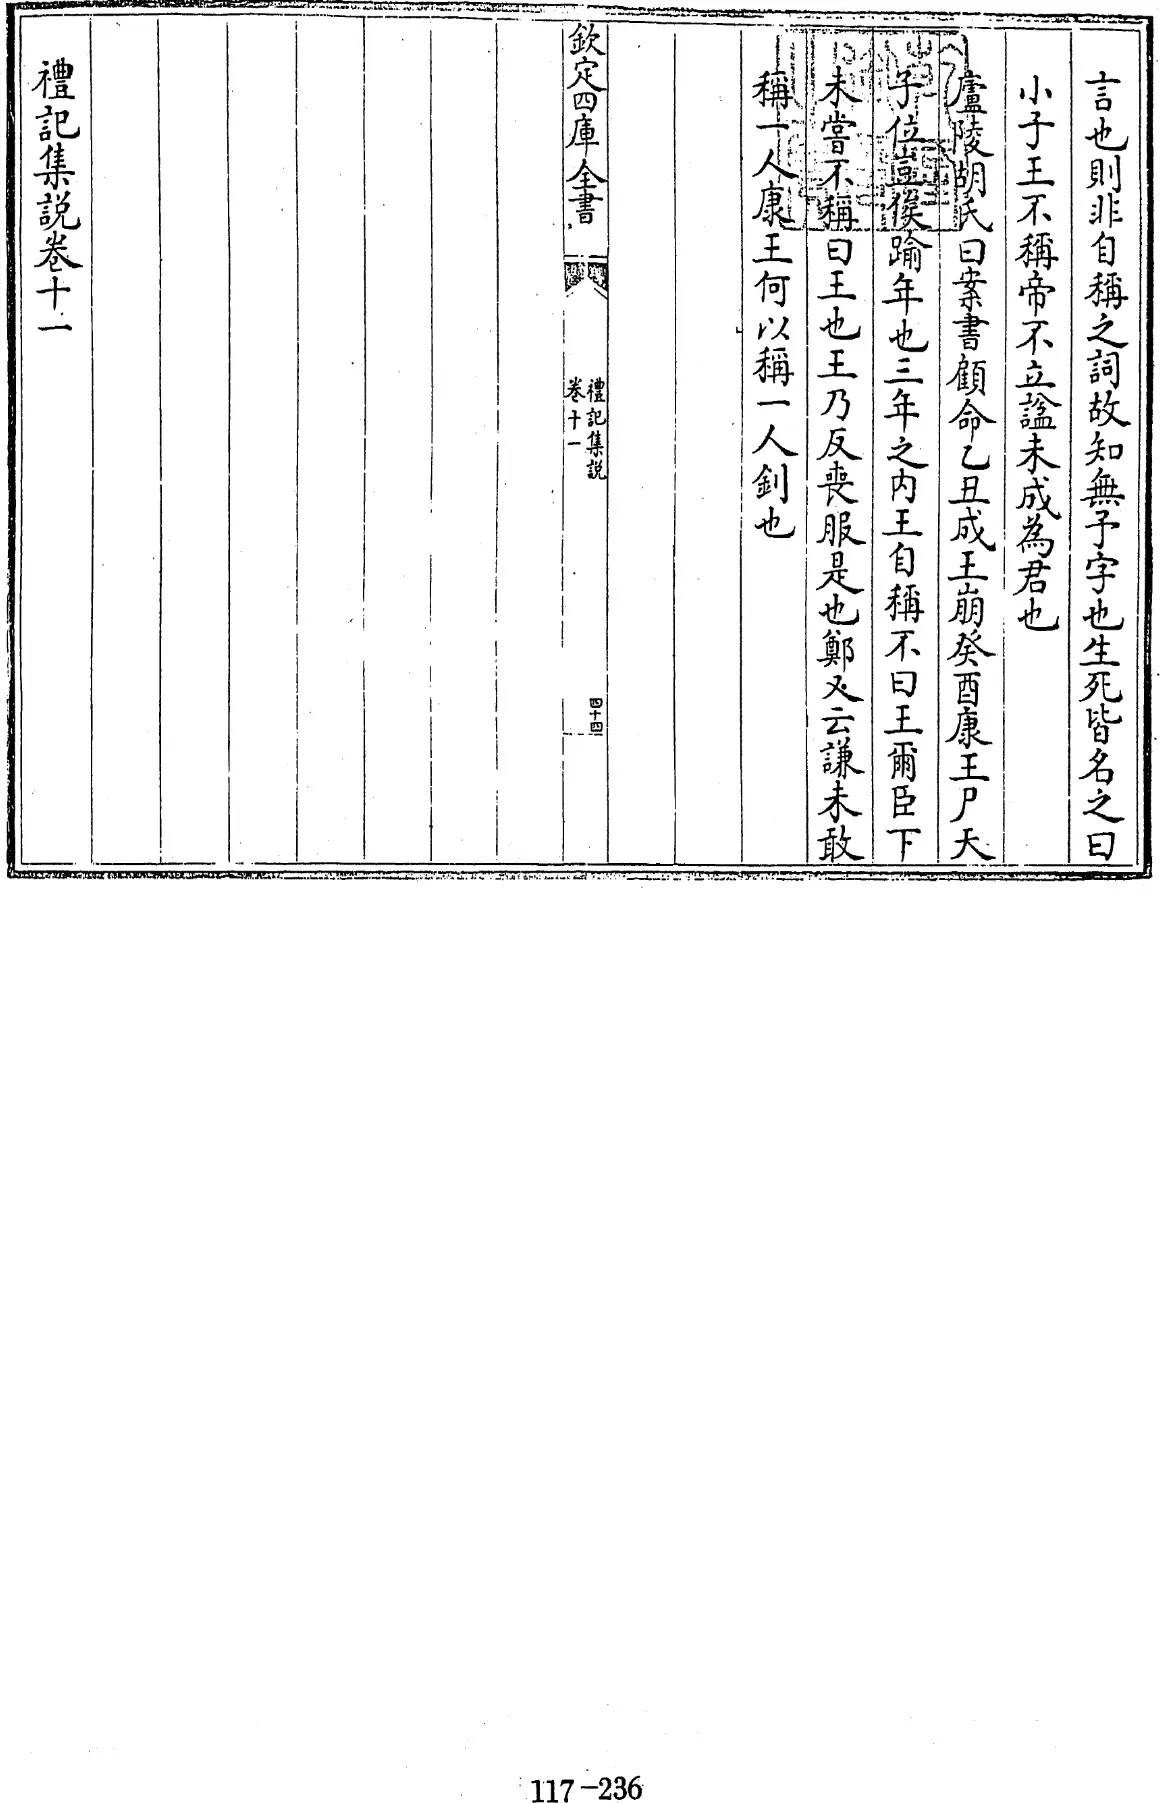 言也則非自稱之詞故知無予字也生死皆名之曰
小子王不稱帝不立諡未成為君也
廬陵胡氏曰案書顧命乙丑成王崩癸酉康王尸天
子位豈俟踰年也三年之内王自稱不曰王爾臣下
未嘗不稱曰王也王乃反喪服是也鄭又云謙未敢
稱一人康王何以稱一人釗也
欽定四庫全書
禮記集説
卷十一
四十四
禮記集説卷十一
117-236